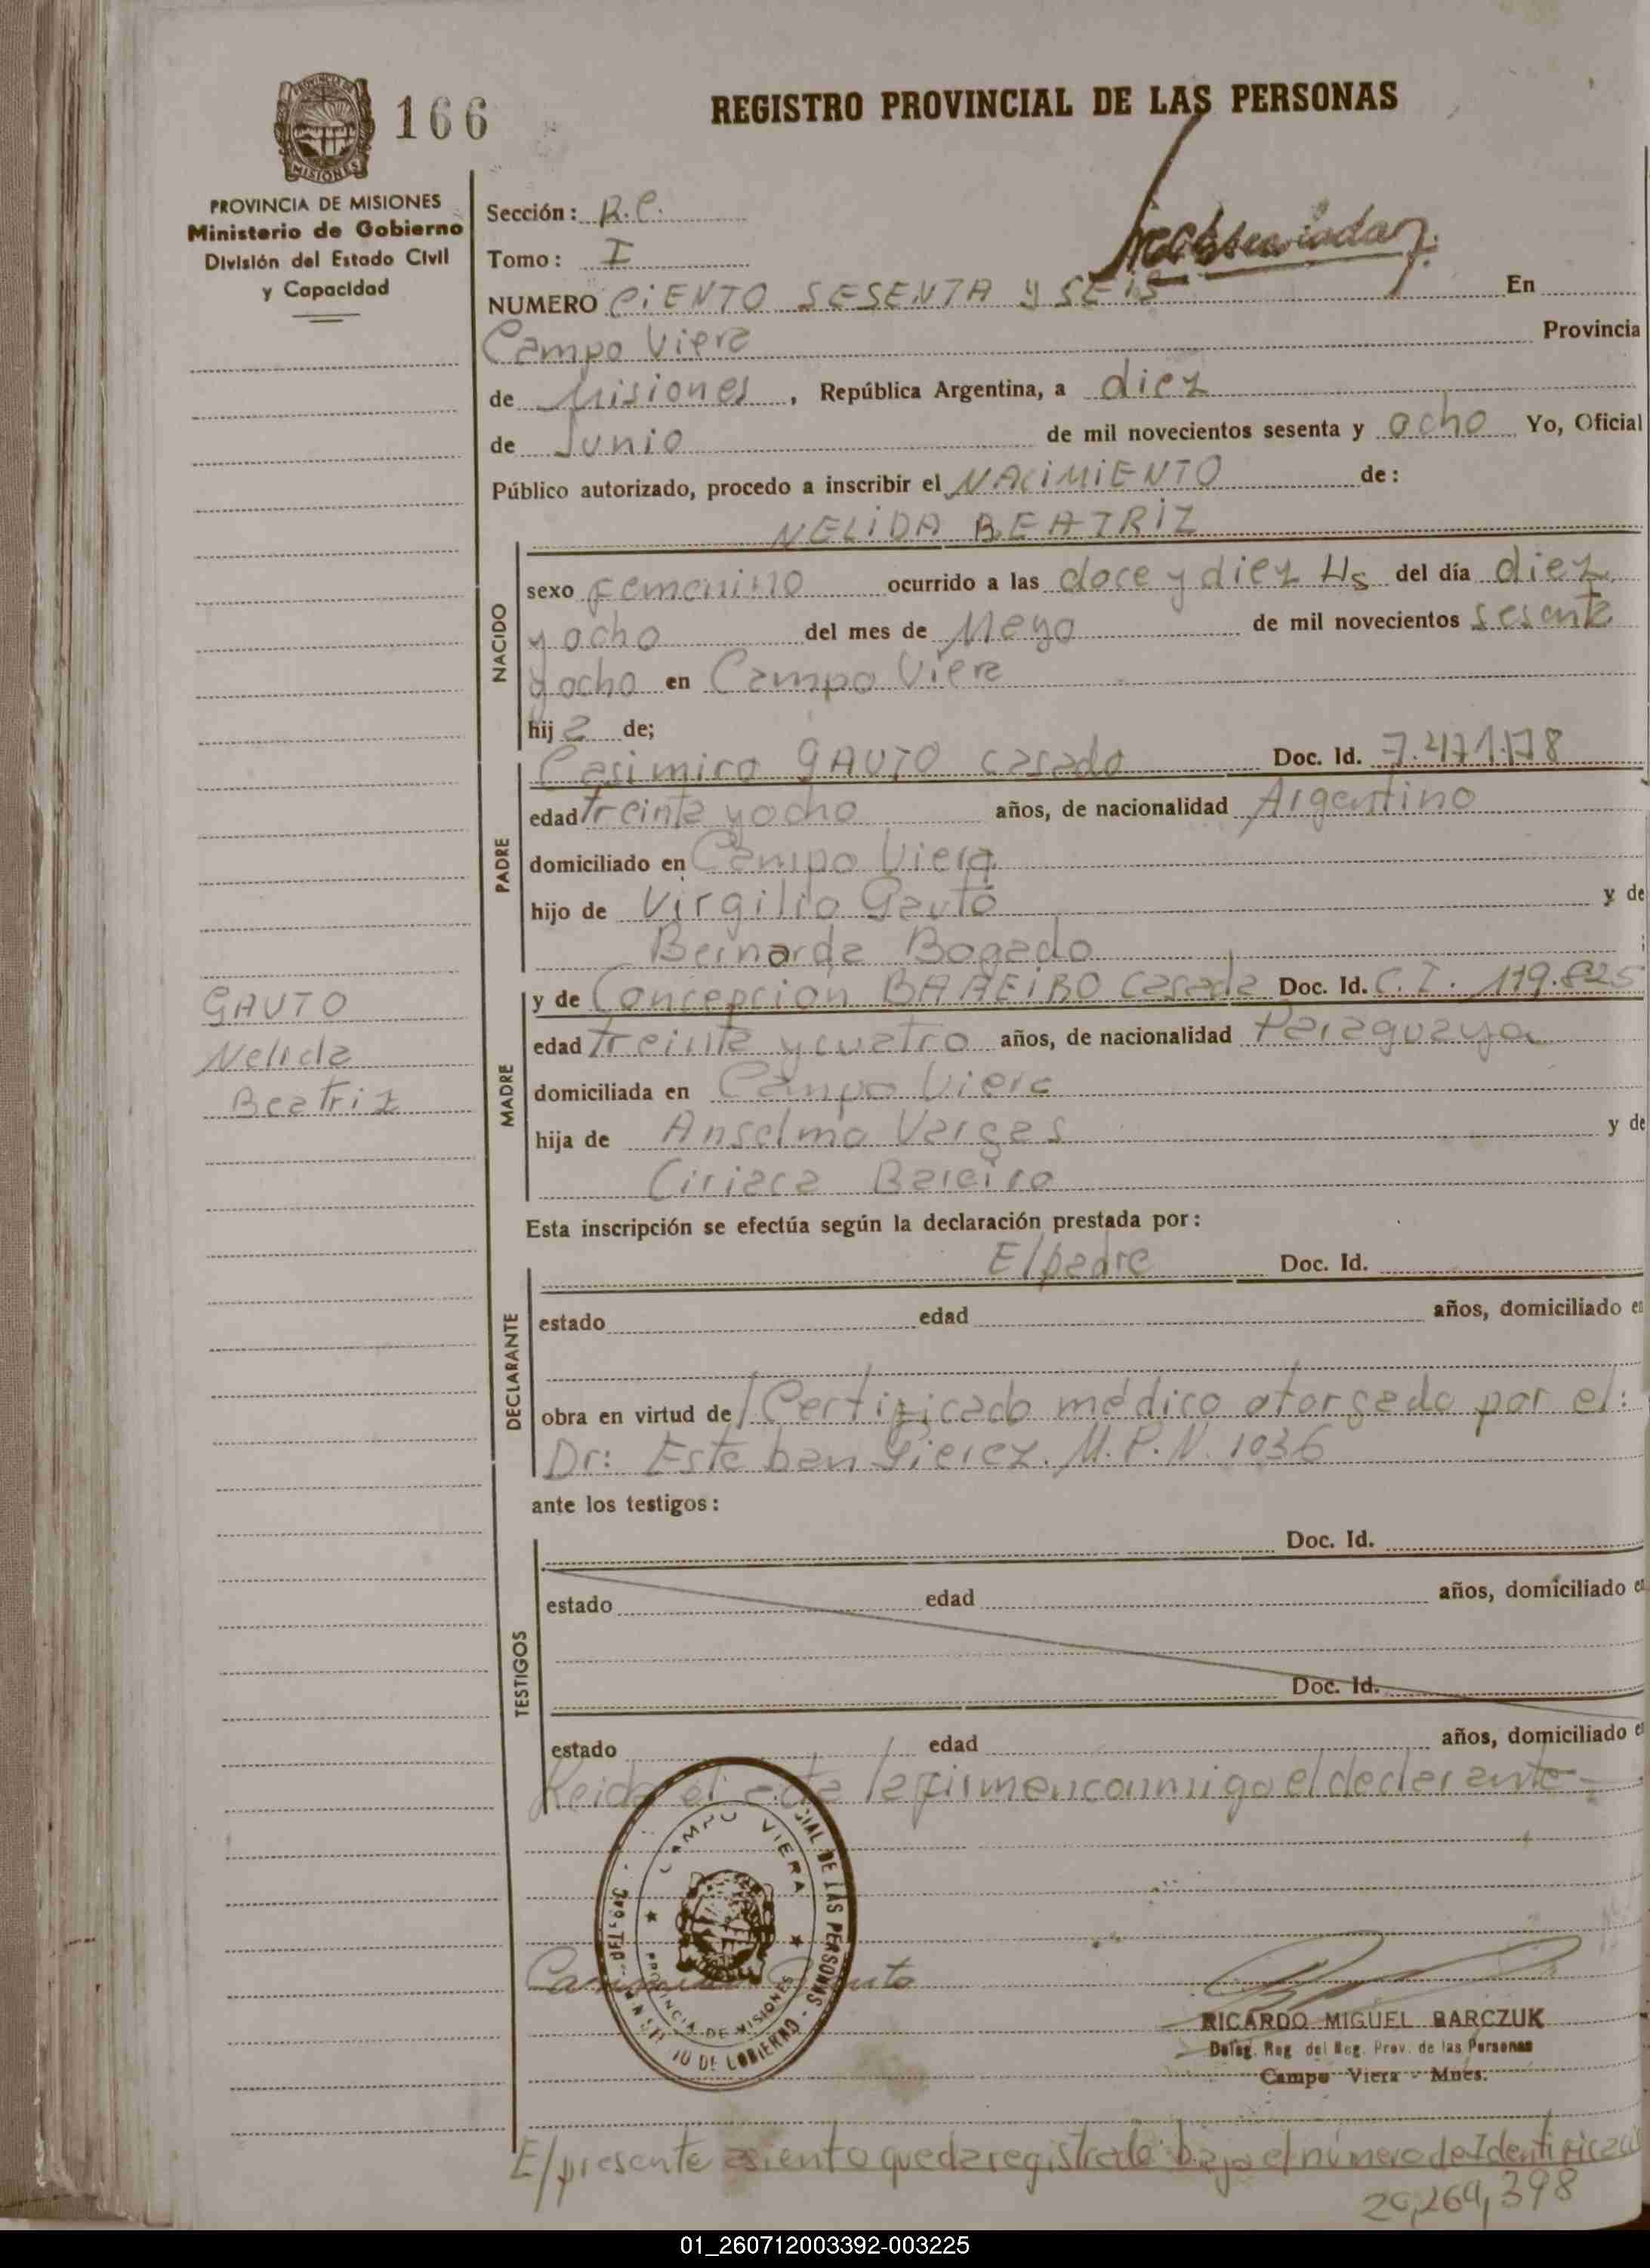 166
REGISTRO PROVINCIAL DE LAS PERSONAS
MISIONES
PROVINCIA DE MISIONES
Ministerio de Gobierno
División del Estado Civil
y Capacidad
Sección: R.C.
Tomo: I
NUMERO CIENTO SESENTA Y SEIS En
Campo Viera Provincia
de Misiones, República Argentina, a diez
de Junio de mil novecientos sesenta y ocho Yo, Oficial
Público autorizado, procedo a inscribir el NACIMIENTO de:
NELIDA BEATRIZ
NACIDO
sexo Femenino ocurrido a las doce y diez Hs del día diez
y ocho del mes de Mayo de mil novecientos sesenta
y ocho en Campo Viera
hija de;
PADRE
Casimiro GAUTO casado Doc. Id. 7.471.178
edad treinta y ocho años, de nacionalidad Argentino
domiciliado en Campo Viera
hijo de Virgilio Gauto y de
Bernarda Bogado
MADRE
y de Concepción BAREIRO casada Doc. Id. C.I. 119.825
edad treinta y cuatro años, de nacionalidad Paraguaya
domiciliada en Campo Viera
hija de Anselmo Vargas y de
Ciriaca Bareiro
GAUTO
Nelida
Beatriz
Esta inscripción se efectúa según la declaración prestada por:
DECLARANTE
El padre Doc. Id.
estado edad años, domiciliado e
obra en virtud de Certificado médico otorgado por el:
Dr: Esteban M.P.N. 1036
ante los testigos:
TESTIGOS
Doc. Id.
estado edad años, domiciliado e
Doc. Id.
estado edad años, domiciliado e
Leida el acta la firman conmigo el declarante
CAMPO VIERA
PROVINCIA DE MISIONES
DE LAS PERSONAS
Casimiro Gauto
RICARDO MIGUEL BARCZUK
Deleg. Reg del Reg. Prov. de las Personas
Campo Viera - Mnes.
El presente asiento queda registrado bajo el número de Identificac
20,264,398
01_260712003392-003225